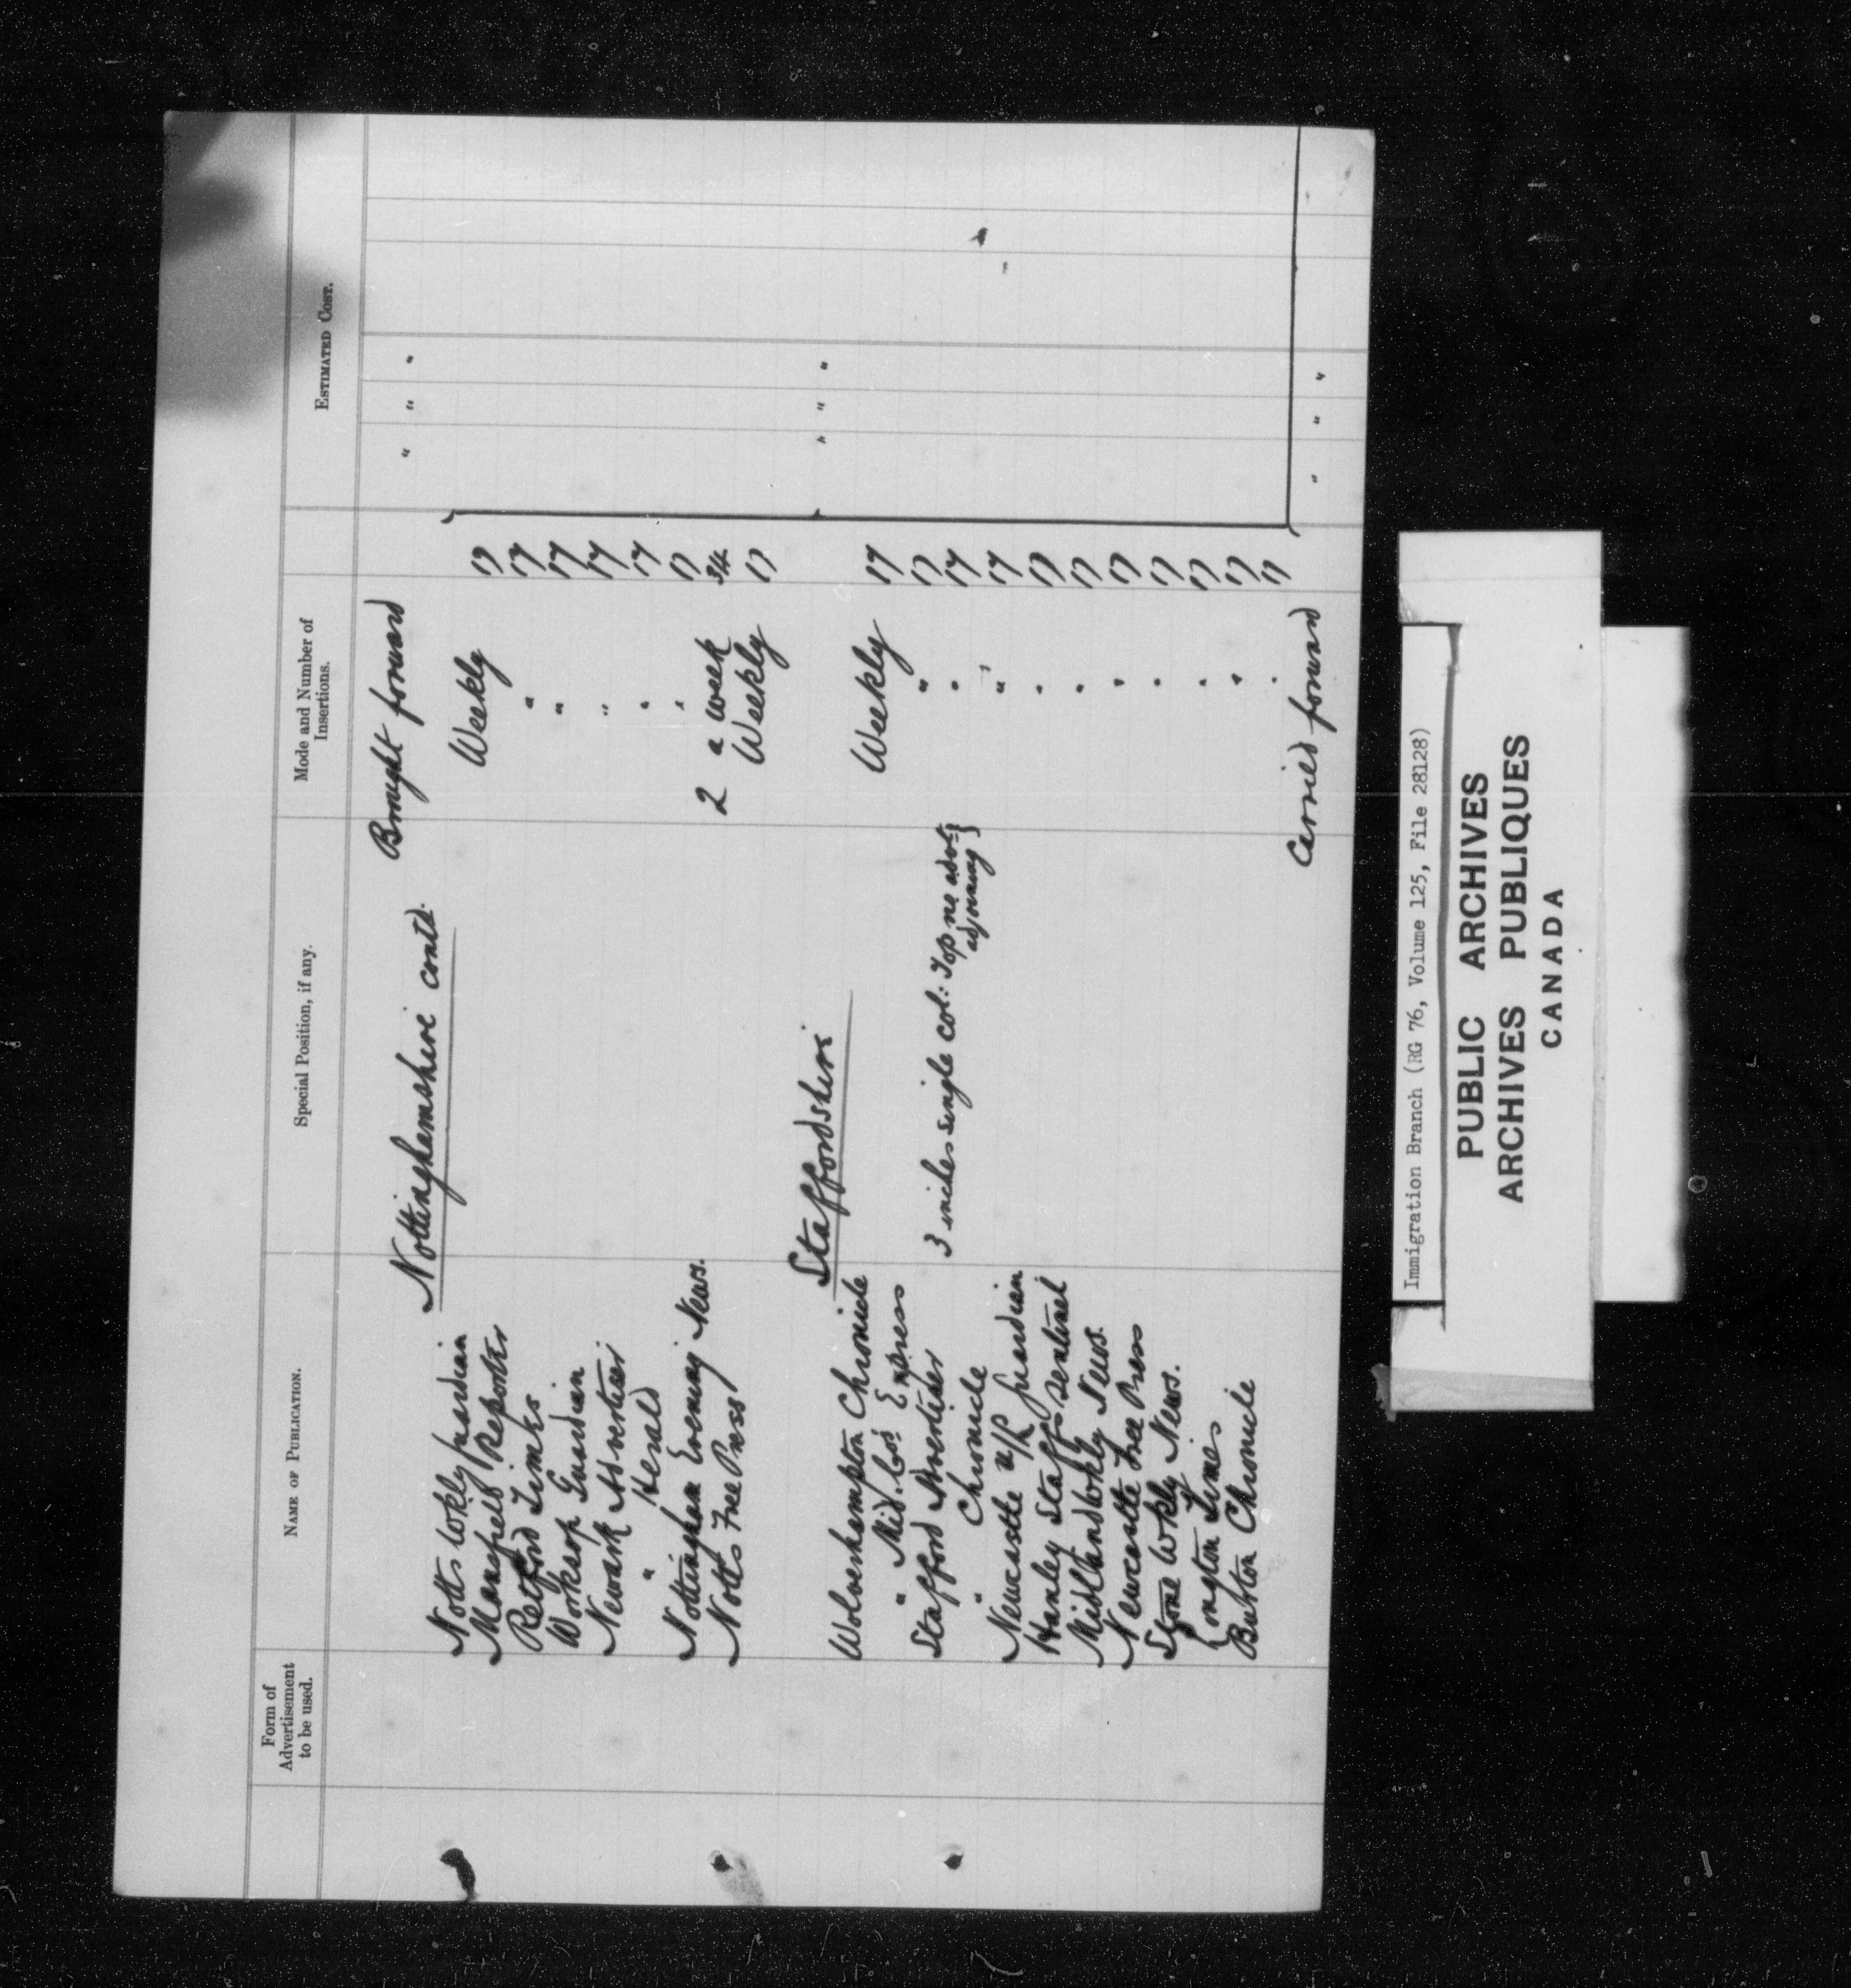 Form of Advertisement to be used. NAME OF PUBLICATION. Special Position, if any. Mode and Number of Insertions. ESTIMATED COST.
Brought forward " " "
Nottinghamshire contd.
Notts Wkly Guardian Weekly 17
Mansfield Reporter " 17
Retford Times " 17
Worksop Guardian " 17
Newark Advertiser " 17
" Herald " 17
Nottingham Evening News. 2 a week 34
Notts Free Press Weekly 17
Staffordshire " " "
Wolverhampton Chronicle Weekly 17
" Mid. Cos. Express " 17
Stafford Advertiser 3 inches single col: Top no advt adjoining } " 17
" Chronicle " 17
Newcastle Guardian " 17
Hanley Staffs Sentinel " 17
Midland Wkly News. " 17
Newcastle Free Press " 17
Stone Wkly News. " 17
Longton Times " 17
Burton Chronicle " 17
Carried forward " " "
Immigration Branch (RG 76, Volume 125, File 28128)
PUBLIC ARCHIVES
ARCHIVES PUBLIQUES
CANADA